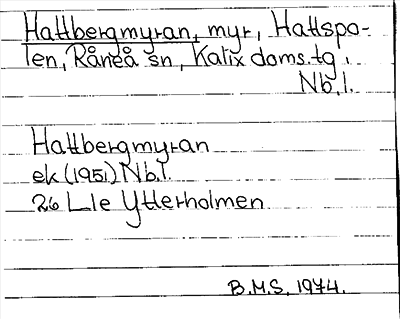 Hattbergmyran, myr, Hattspo-
len, Råneå sn, Kalix doms.tg.
Nb.l.
Hattbergmyran
ek (1951) Nb.l.
26 L1e Ytterholmen
B.M.S. 1974.